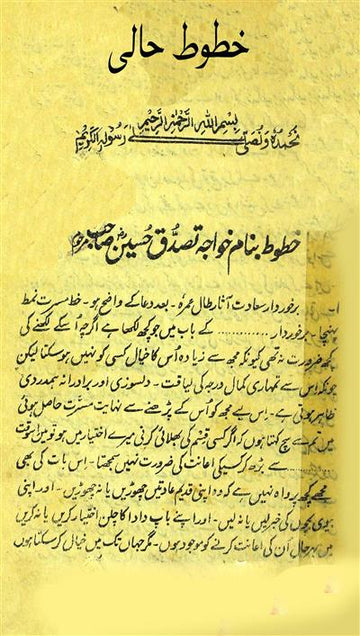 خطوط حالی
بسم اللہ الرحمٰن الرحیم
نحمدہ ونصلی علےٰ رسولہ الکریم
خطوط بنام خواجہ تصدّق حسین صاحب مرحوم
۱- برخوردار سعادت آثار طال عمرہ - بعد دعا کے واضح ہو - خط مسرت نمط
پہنچا - برخوردار .............. کے باب میں جو کچھ لکھا ہے اگرچہ اُسکے لکھنے کی
کچھ ضرورت نہ تھی کیونکہ مجھ سے زیادہ اُس کا خیال کسی کو نہیں ہوسکتا لیکن
چونکہ اس سے تمہاری کمال درجہ کی لیاقت - دلسوزی اور برادرانہ ہمدردی
ظاہر ہوتی ہے - اس لیے مجھ کو اُس کے پڑھنے سے نہایت مسرّت حاصل ہوئی
میں تم سے سچ کہتا ہوں کہ اگر کسی قسم کی بھلائی کرنی میرے اختیار میں ہو تو میں اسوقت
............ سے بڑھ کر کسیکی اعانت کی ضرورت نہیں سمجھتا - اس بات کی بھی
مجھے کچھ پروا نہیں ہے کہ وہ اپنی قدیم عادتیں چھوڑیں یا نہ چھوڑیں - اور اپنی
بیوی بچوں کی خبر لیں یا نہ لیں - اور اپنے باپ دادا کا چلن اختیار کریں یا نہ کریں
میں بہر حال اُن کی اعانت کرنے کو موجود ہوں - مگر جہاں تک میں خیال کرسکتا ہوں